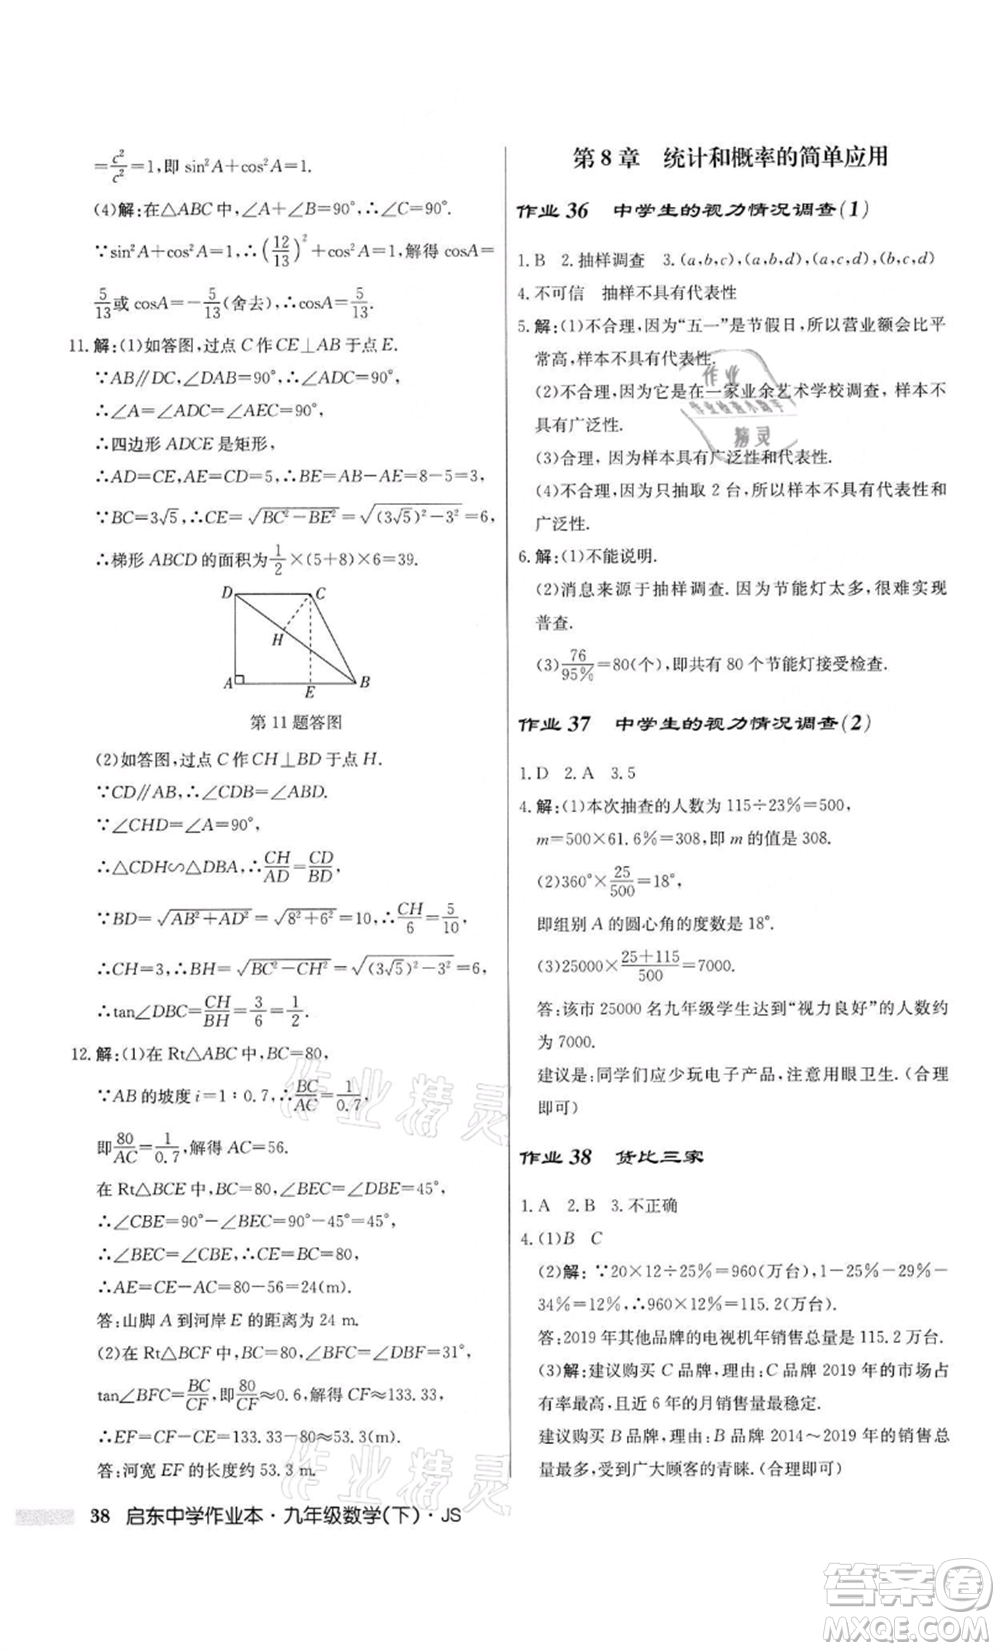 c²/c²=1,即 sin²A+cos²A=1.
(4)解:在△ABC 中,∠A+∠B=90°,∴∠C=90°.
∵sin²A+cos²A=1,∴(12/13)²+cos²A=1,解得 cosA=
5/13或 cosA=-5/13(舍去),∴cosA=5/13.
11.解:(1)如答图,过点 C 作 CE⊥AB 于点 E.
∵AB∥DC,∠DAB=90°,
∴∠A=∠ADC=∠AEC=90°.
∴四边形 ADCE 是矩形,
∴AD=CE,AE=CD=5,∴BE=AB-AE=8-5=3,
∵BC=3√5,∴CE=√(BC²-BE²)=√((3√5)²-3²)=6,
∴梯形 ABCD 的面积为1/2×(5+8)×6=39.
D C
H
A E B
第 11 题答图
(2)如答图,过点 C 作 CH⊥BD 于点 H.
∵CD∥AB,∴∠CDB=∠ABD.
∵∠CHD=∠A=90°,
∴△CDH∽△DBA,∴CH/AD=CD/BD.
∵BD=√(AB²+AD²)=√(8²+6²)=10,∴CH/6=5/10,
∴CH=3,∴BH=√(BC²-CH²)=√((3√5)²-3²)=6,
∴tan∠DBC=CH/BH=3/6=1/2.
12.解:(1)在 Rt△ABC 中,BC=80,
∵AB 的坡度 i=1∶0.7,∴BC/AC=1/0.7,
即80/AC=1/0.7,解得 AC=56.
在 Rt△BCE 中,BC=80,∠BEC=∠DBE=45°,
∴∠CBE=90°-∠BEC=90°-45°=45°,
∴∠BEC=∠CBE,∴CE=BC=80.
∴AE=CE-AC=80-56=24(m).
答:山脚 A 到河岸 E 的距离为 24 m.
(2)在 Rt△BCF 中,BC=80,∠BFC=∠DBF=31°,
tan∠BFC=BC/CF,即80/CF≈0.6,解得 CF≈133.33,
∴EF=CF-CE=133.33-80=53.33≈53.3(m).
答:河宽 EF 的长度约 53.3 m.
38 启东中学作业本·九年级数学(下)·JS
第 8 章 统计和概率的简单应用
作业 36 中学生的视力情况调查(1)
1.B 2.抽样调查 3.(a,b,c),(a,b,d),(a,c,d),(b,c,d)
4.不可信 抽样不具有代表性
5.解:(1)不合理,因为“五一”是节假日,所以营业额会比平
常高,样本不具有代表性.
(2)不合理,因为它是在一家业余艺术学校调查,样本不
具有广泛性.
(3)合理,因为样本具有广泛性和代表性.
(4)不合理,因为只抽取 2 台,所以样本不具有代表性和
广泛性.
6.解:(1)不能说明.
(2)消息来源于抽样调查. 因为节能灯太多,很难实施
普查.
(3)76/95%=80(个),即共有 80 个节能灯接受检查.
作业 37 中学生的视力情况调查(2)
1.D 2.A 3.5
4.解:(1)本次抽查的人数为 115÷23%=500,
m=500×61.6%=308,即 m 的值是 308.
(2)360°×25/500=18°,
即组别 A 的圆心角的度数是 18°.
(3)25000×(25+115)/500=7000.
答:该市 25000 名九年级学生达到“视力良好”的人数约
为 7000.
建议是:同学们应少玩电子产品,注意用眼卫生.(合理
即可)
作业 38 货比三家
1.A 2.B 3.不正确
4.(1)B C
(2)解:∵20×12÷25%=960(万台),1-25%-29%-
34%=12%,∴960×12%=115.2(万台).
答:2019 年其他品牌的电视机年销售总量是 115.2 万台.
(3)解:建议购买 C 品牌,理由:C 品牌 2019 年的市场占
有率最高,且近 6 年的月销售量最稳定.
建议购买 B 品牌,理由:B 品牌 2014～2019 年的销售总量
最多,受到广大顾客的青睐.(合理即可)
作业精灵
作业精灵
作业
精灵
答案圈
MXQE.COM